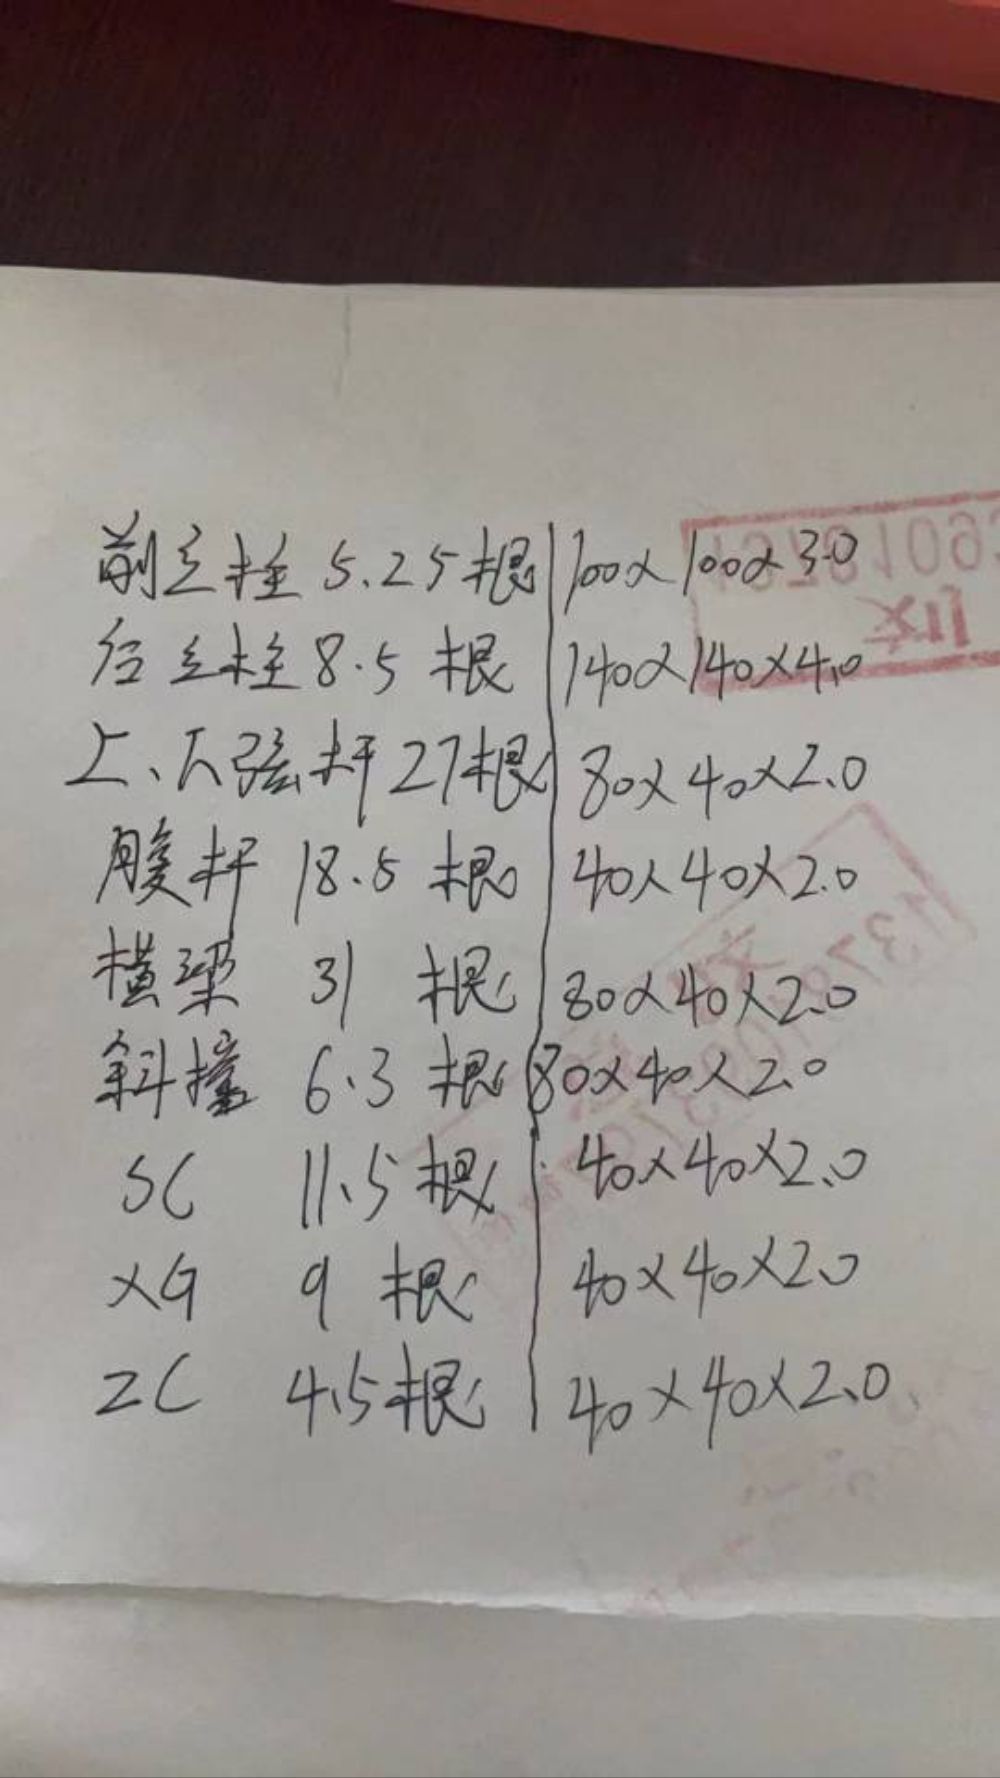 前立柱 5.25根 100×100×3.0
后立柱 8.5根 140×140×4.0
上、下弦杆 27根 80×40×2.0
腹杆 18.5根 40×40×2.0
横梁 31根 80×40×2.0
斜撑 6.3根 80×40×2.0
SC 11.5根 40×40×2.0
XG 9根 40×40×2.0
ZC 4.5根 40×40×2.0